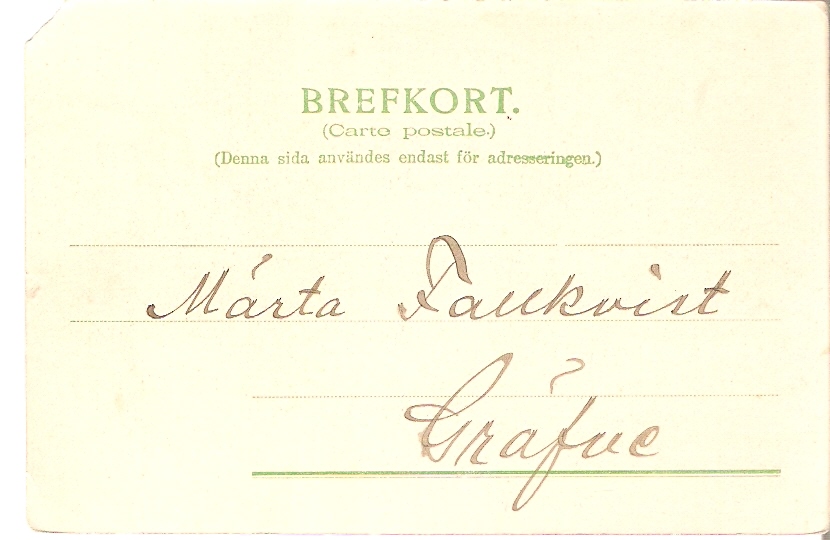 BREFKORT.
(Carte postale.)
(Denna sida användes endast för adresseringen.)
Märta
Gräfve